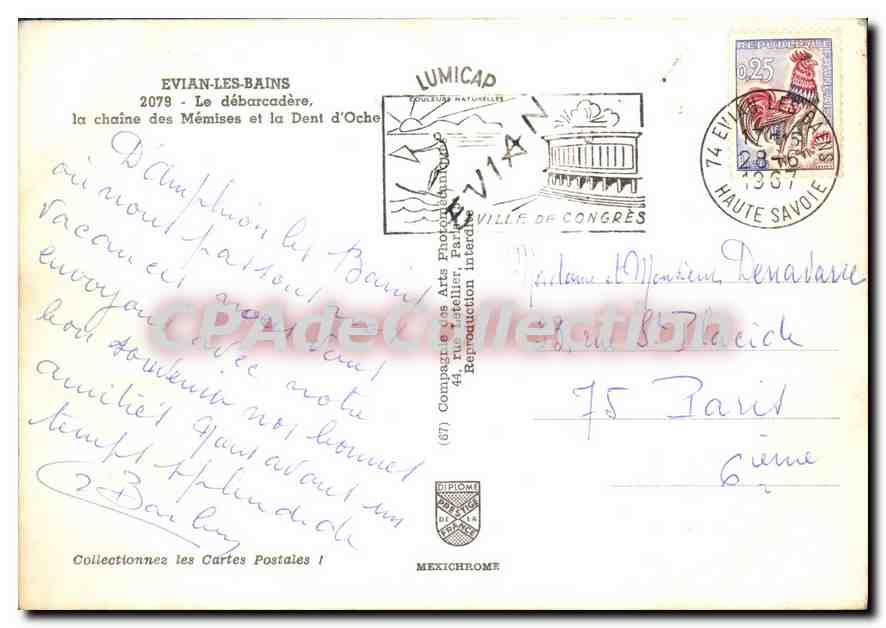 EVIAN-LES-BAINS
2079 - Le débarcadère,
la chaîne des Mémises et la Dent d'Oche
D'Amphion les Bains
où nous passons nos
vacances nous vous
envoyons avec notre
bon souvenir nos bonnes
amitiés Nous avons un
temps splendide
Collectionnez les Cartes Postales !
LUMICAP
COULEURS NATURELLES
EVIAN
VILLE DE CONGRÈS
(67) Compagnie des Arts Photomécaniques
44, rue Letellier, Paris
Reproduction interdite
DIPLÔME
PRESTIGE
DE LA
FRANCE
MEXICHROME
REPUBLIQUE FRANÇAISE
0,25
74 EVIAN-LES-BAINS
28-6
1967
HAUTE SAVOIE
Madame et Monsieur
rue St Placide
75 Paris
6ième
CPAdeCollection